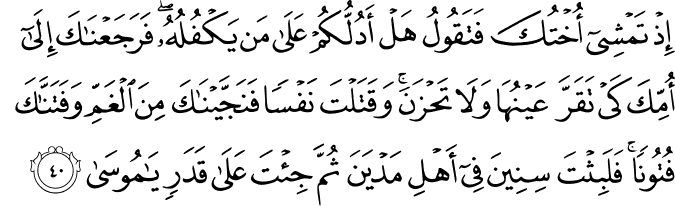 إِذْ تَمْشِىٓ أُخْتُكَ فَتَقُولُ هَلْ أَدُلُّكُمْ عَلَىٰ مَن يَكْفُلُهُۥ ۖ فَرَجَعْنَٰكَ إِلَىٰٓ
أُمِّكَ كَىْ تَقَرَّ عَيْنُهَا وَلَا تَحْزَنَ ۚ وَقَتَلْتَ نَفْسًا فَنَجَّيْنَٰكَ مِنَ ٱلْغَمِّ وَفَتَنَّٰكَ
فُتُونًا ۚ فَلَبِثْتَ سِنِينَ فِىٓ أَهْلِ مَدْيَنَ ثُمَّ جِئْتَ عَلَىٰ قَدَرٍ يَٰمُوسَىٰ ٤٠